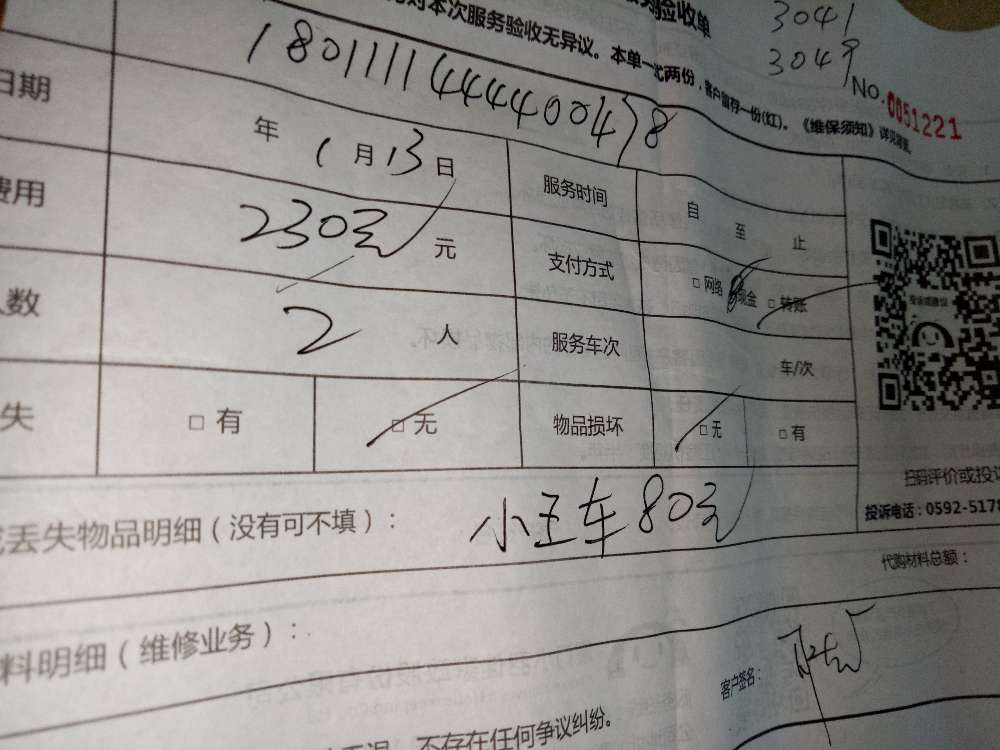 务验收单
对本次服务验收无异议。本单一式两份，客户留存一份(红)。《维保须知》详见背面。
3041
3049
No.0051221
1801111444400478
日期
年 1月13日
服务时间
自 至 止
费用
230元 元
支付方式
□ 网络 现金 □ 转账
人数
2 人
服务车次
车/次
失
□ 有
□ 无
物品损坏
□ 无
□ 有
投诉或建议
扫码评价或投诉
投诉电话：0592-5178
丢失物品明细（没有可不填）：
小王车80元
代购材料总额：
料明细（维修业务）：
客户签名：
不存在任何争议纠纷。